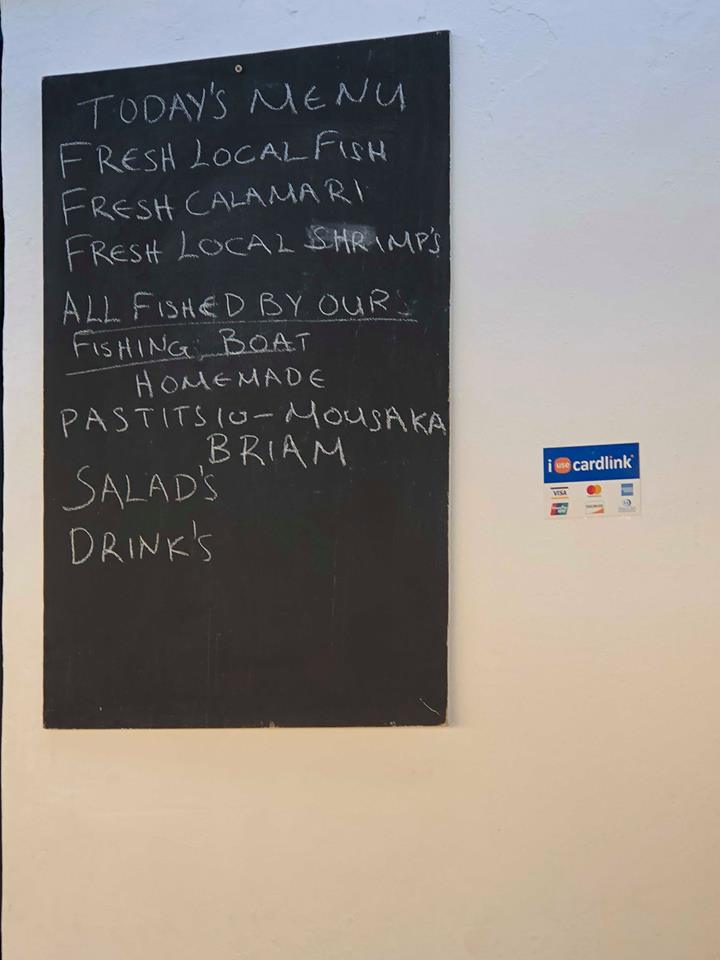 TODAY'S MENU
FRESH LOCAL FISH
FRESH CALAMARI
FRESH LOCAL SHRIMP'S
ALL FISHED BY OUR
FISHING BOAT
HOMEMADE
PASTITSIO - MOUSAKA
BRIAM
SALAD'S
DRINK'S
i use cardlink
VISA